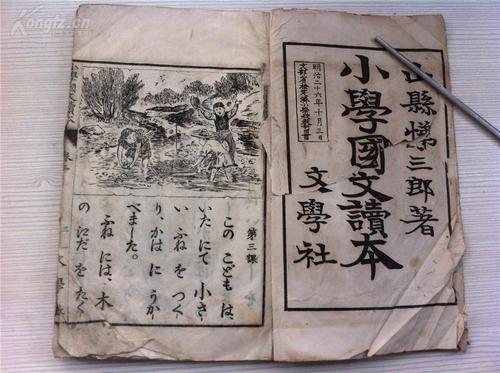 山縣悌三郎著
明治二十六年十月三日
文部省檢定濟小學校教科書
小學國文讀本
文學社
第三課
この こども は、
いた にて 小さ
い ふね を つく
り、かは に うか
べました。
ふね には、木
の えだ を たく
Kongfz.cn